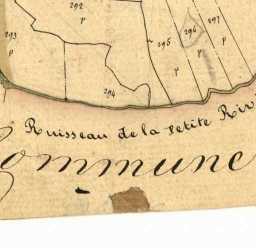 292
297
293
p
296
p
295
p
294
p
p
Ruisseau de la petite Rivi
Commune